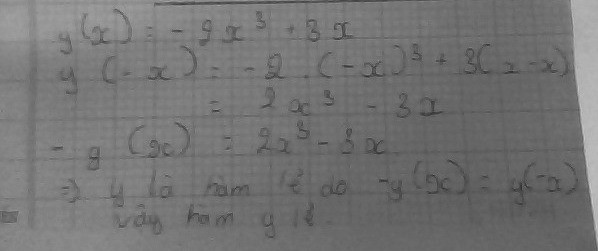 y(x) = -2x³ + 3x
y(-x) = -2.(-x)³ + 3(x-x)
= 2x³ - 3x
-y(x) = 2x³ - 3x
=> y là hàm lẻ do -y(x) = y(-x)
vậy hàm y lẻ.